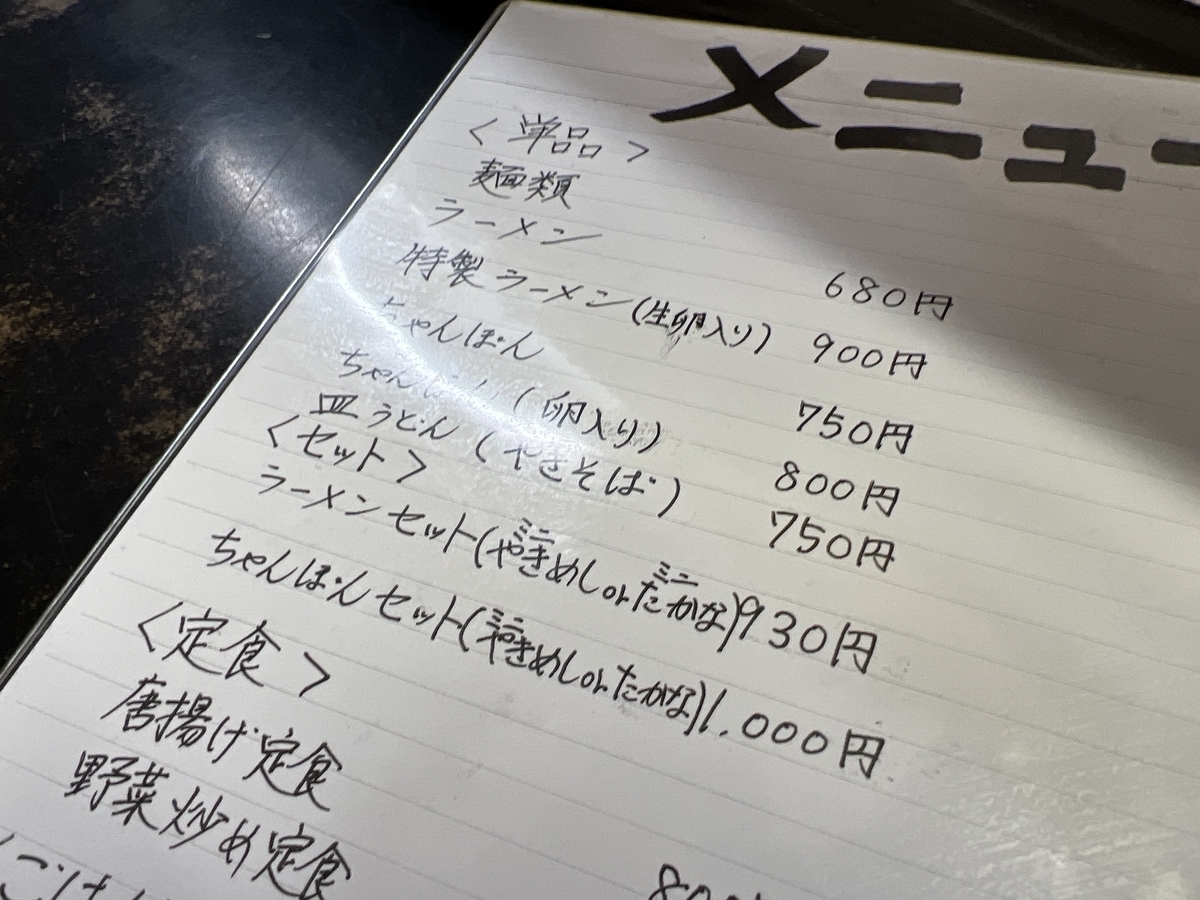 メニュー
＜単品＞
麺類
ラーメン 680円
特製ラーメン(生卵入り) 900円
ちゃんぽん 750円
ちゃんぽん(卵入り) 800円
皿うどん(やきそば) 750円
＜セット＞
ラーメンセット(ミニやきめしorミニたかな) 930円
ちゃんぽんセット(ミニやきめしorたかな) 1,000円
＜定食＞
唐揚げ定食
野菜炒め定食